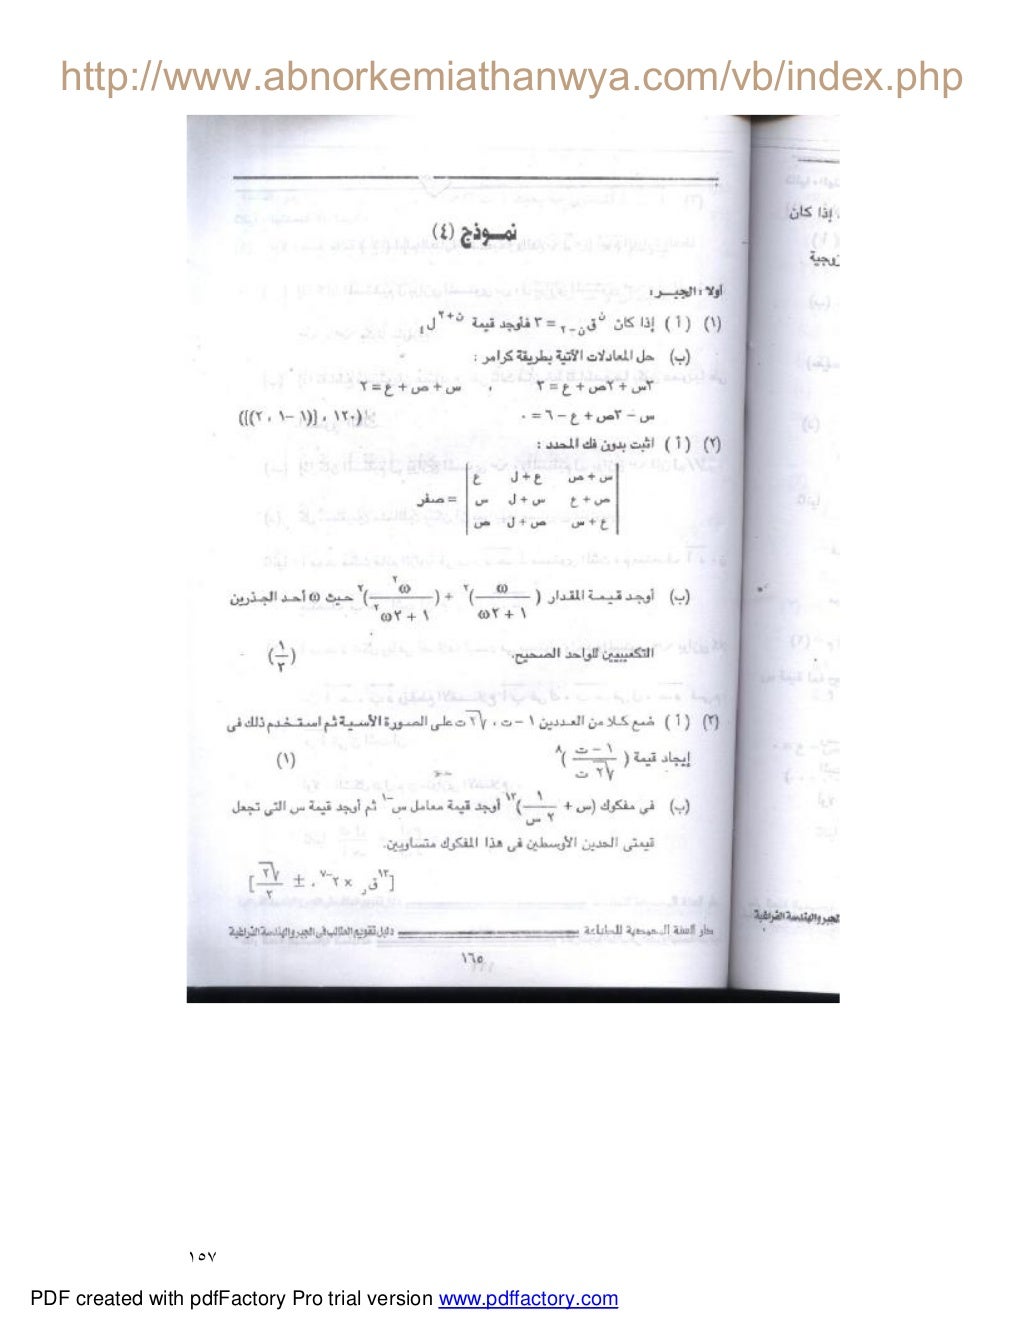 http://www.abnorkemiathanwya.com/vb/index.php
نموذج (٤)
إذا كان
أولا : الجبـر :
(١) ( أ ) إذا كان ⁿق ن−٢ = ٣ فأوجد قيمة ن+٢ل٤
(ب) حل المعادلات الآتية بطريقة كرامر :
٣س + ٢ص + ع = ٣ ، س + ص + ع = ٢
س − ٣ص + ع − ٦ = ٠ (١٢٠ ، {(١ ، −١ ، ٢)})
(٢) ( أ ) اثبت بدون فك المحدد :
س + ص ع + ل ع
ص + ع س + ل س = صفر
ع + س ص + ل ص
(ب) أوجد قيمة المقدار (ω / ١ + ٢ω)² + (ω² / ١ + ٢ω²)² حيث ω أحد الجذرين
التكعيبيين للواحد الصحيح.
(٣) ( أ ) ضع كلا من العددين ١ − ت ، √٢ ت على الصورة الأسية ثم استخدم ذلك فى
إيجاد قيمة (١ − ت / √٢ ت)⁸ (١)
(ب) فى مفكوك (س + ١ / ٢ س)¹² أوجد قيمة معامل س ثم أوجد قيمة س التى تجعل
قيمتى الحدين الأوسطين فى هذا المفكوك متساويين.
دار السنة المحمدية للطباعة دليل تقويم الطالب فى الجبر والهندسة الفراغية
١٦٥
١٥٧
PDF created with pdfFactory Pro trial version www.pdffactory.com